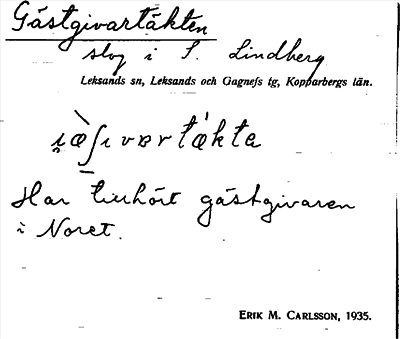 Gästgivartäkten
slog i S. Lindberg
Leksands sn, Leksands och Gagnefs tg, Kopparbergs län.
Har tillhört gästgivaren
i Noret.
ERIK M. CARLSSON, 1935.